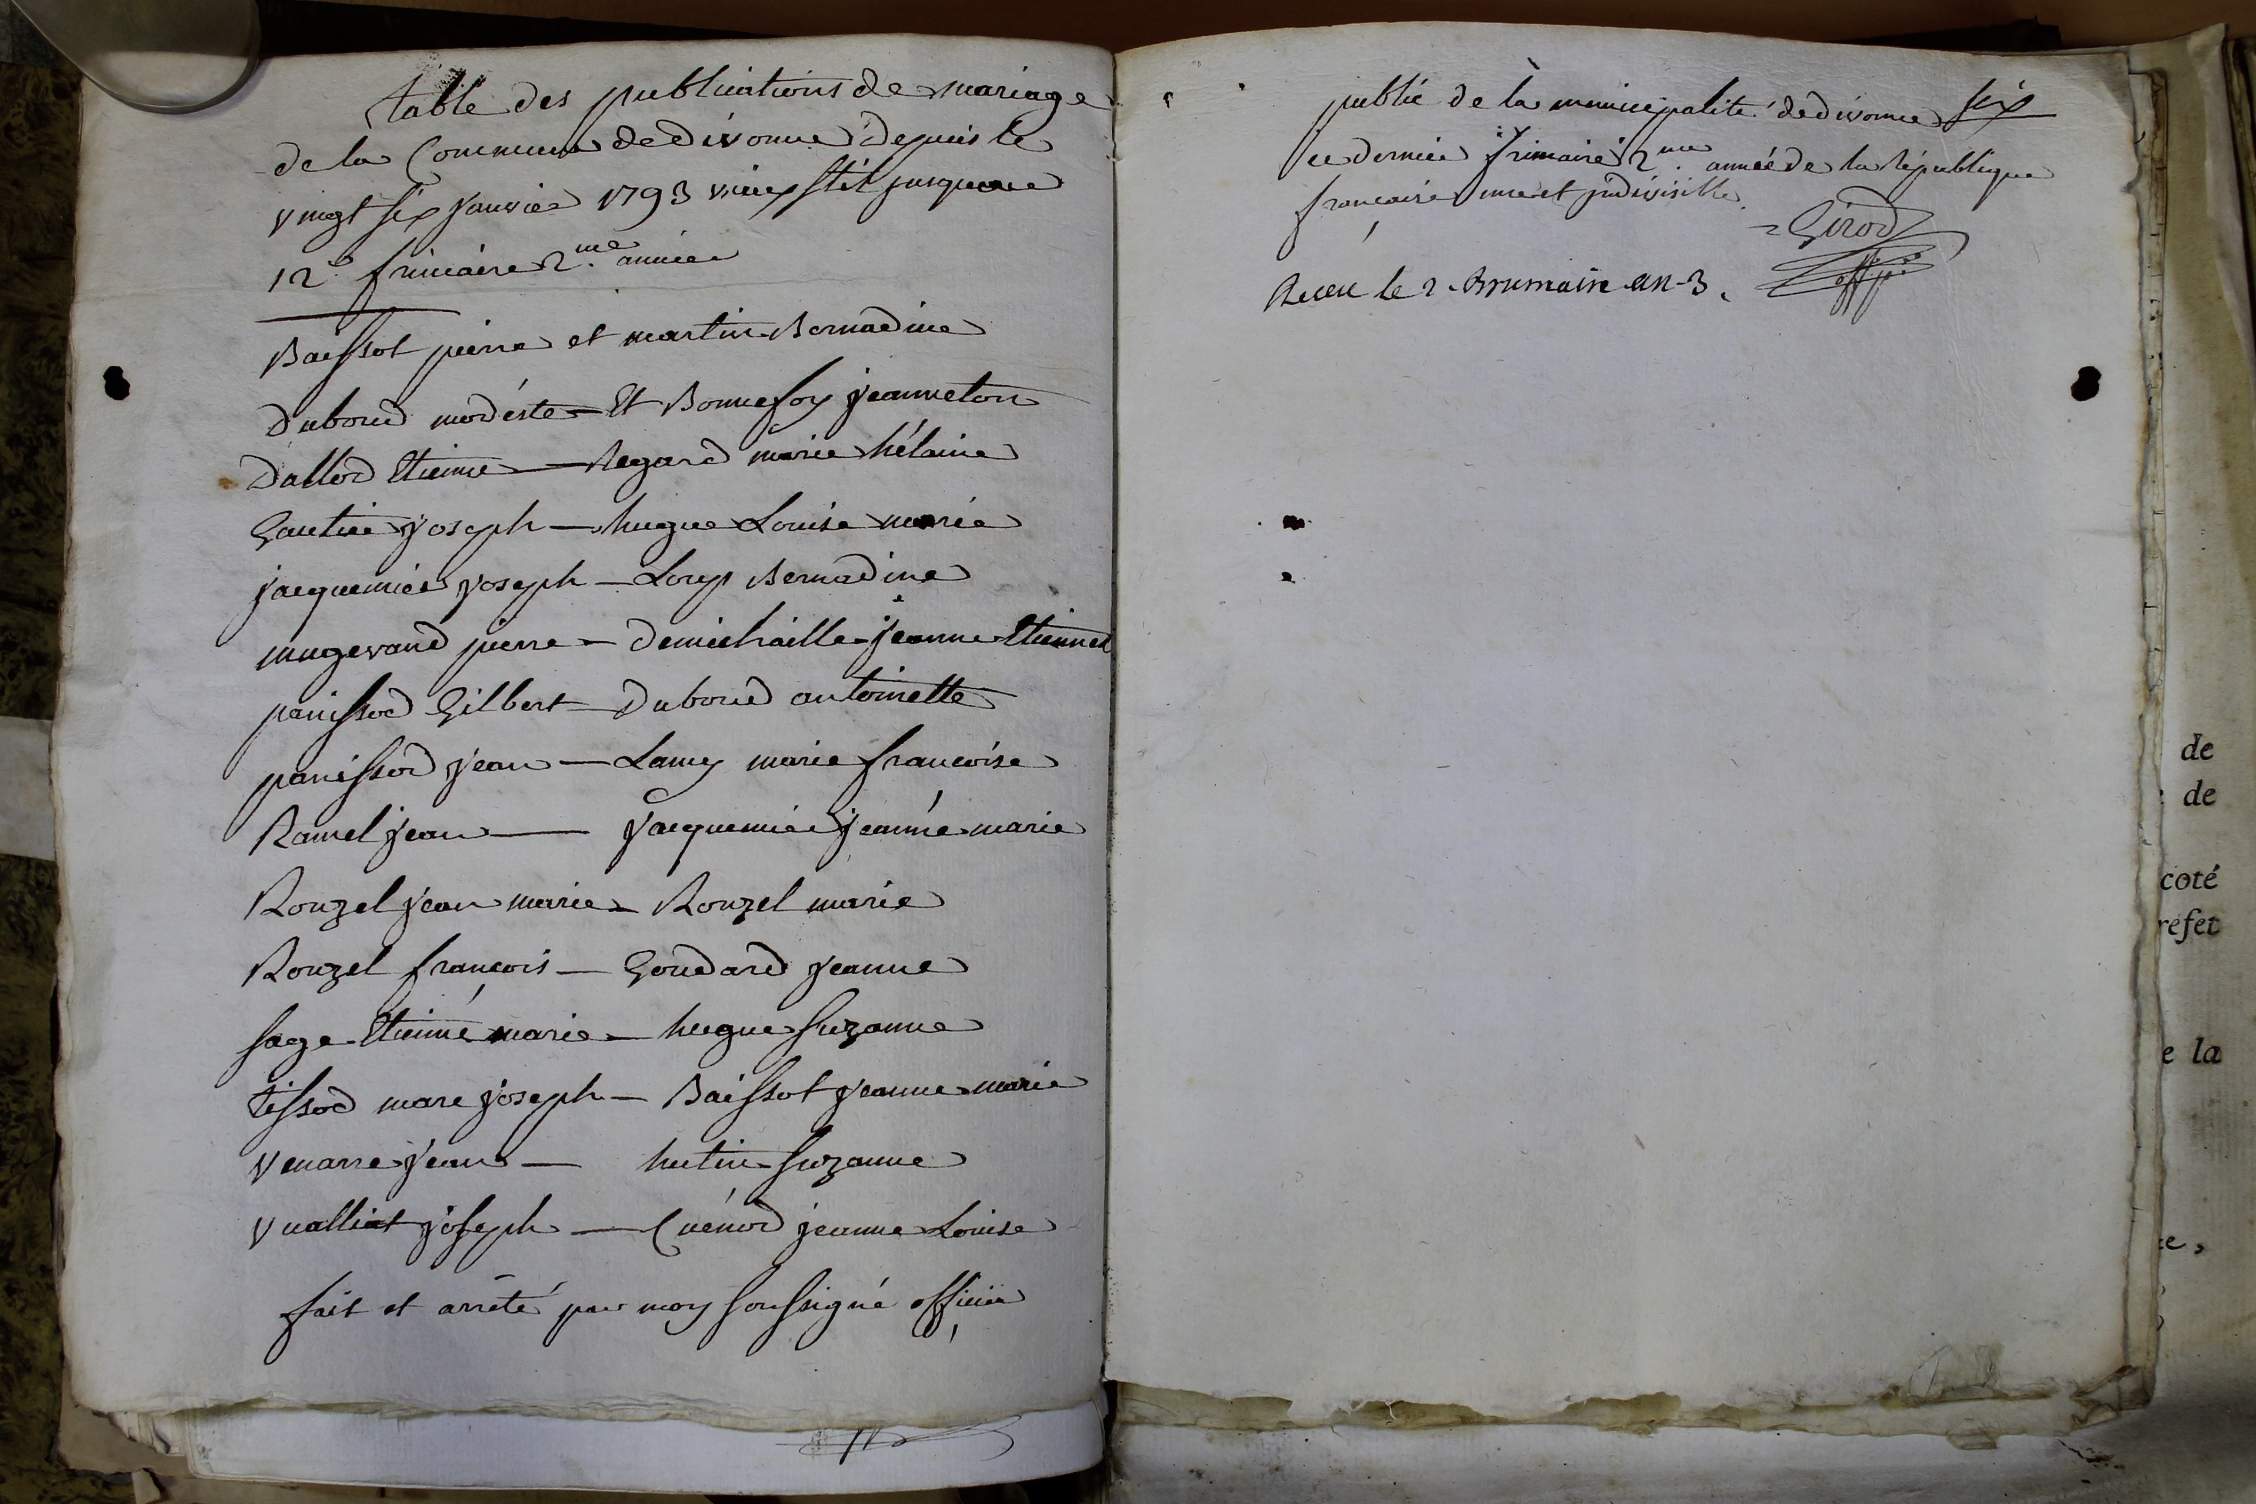 table des publications de mariage
de la Commune de divonne depuis le
vingt six janvier 1793 vieux stil jusqu'au
12e frimaire 2me année
Baissot pierre et martin Bernadine
Duboud modéste Et Bonnefoy jeanneton
Dallod Etienne — Regard marie hélaine
Gautier joseph — hugue Louise marie
jacquemier joseph — Loup Bernadine
mugerand pierre — demichaille jeanne Etiennea
panissod Gilbert — Duboud antoinette
panissod jean — Lamy marie francoise
Ramel jean — jacquemier jeanne marie
Rouzel jean marie — Rouzel marie
Rouzel françois — Goudard jeanne
sage Etienne marie — hugue suzanne
tissod marc joseph — Baissot jeanne marie
Venarre jean — hutin suzanne
Vualliat joseph — Cuénod jeanne Louise
fait et arrêté par moy soussigné officier
publié de la municipalité de divonne six
ce dernier frimaire 2me année de la république
françaire une et indivisible.
Girod
off. p.
Receu le 2. Brumaire an 3.
de
de
coté
réfet
e la
ce,